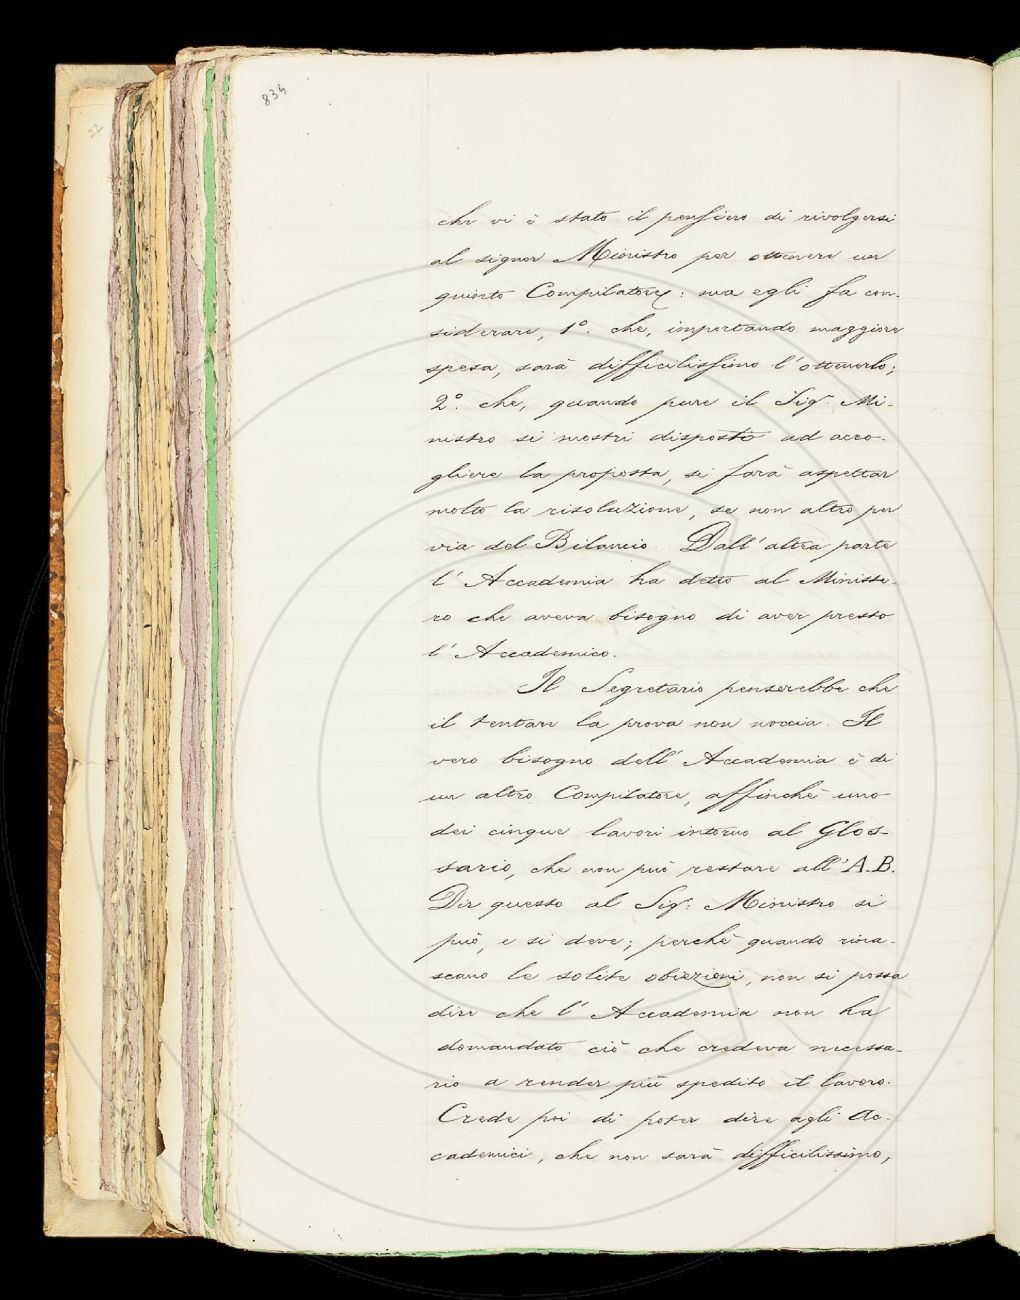 834
22
che vi è stato il pensiero di rivolgersi
al signor Ministro per ottenere un
quinto Compilatore; ma egli fa con-
siderare, 1º. che, importando maggiore
spesa, sarà difficilissimo l'ottenerlo;
2º. che, quando pure il Sigr. Mi-
nistro si mostri disposto ad acco-
gliere la proposta, si farà aspettar
molto la risoluzione, se non altro per
via del Bilancio. Dall'altra parte
l'Accademia ha detto al Ministe-
ro che aveva bisogno di aver presto
l'Accademico.
Il Segretario penserebbe che
il tentare la prova non noccia. Il
vero bisogno dell'Accademia è di
un altro Compilatore, affinchè uno
dei cinque lavori intorno al Glos-
sario, che non può restare all'A.B.
Dir questo al Sigr. Ministro si
può, e si deve; perchè quando rina-
scano le solite obiezioni, non si possa
dire che l'Accademia non ha
domandato ciò che credeva necessa-
rio a render più spedito il lavoro.
Crede poi di poter dire agli Ac-
cademici, che non sarà difficilissimo,